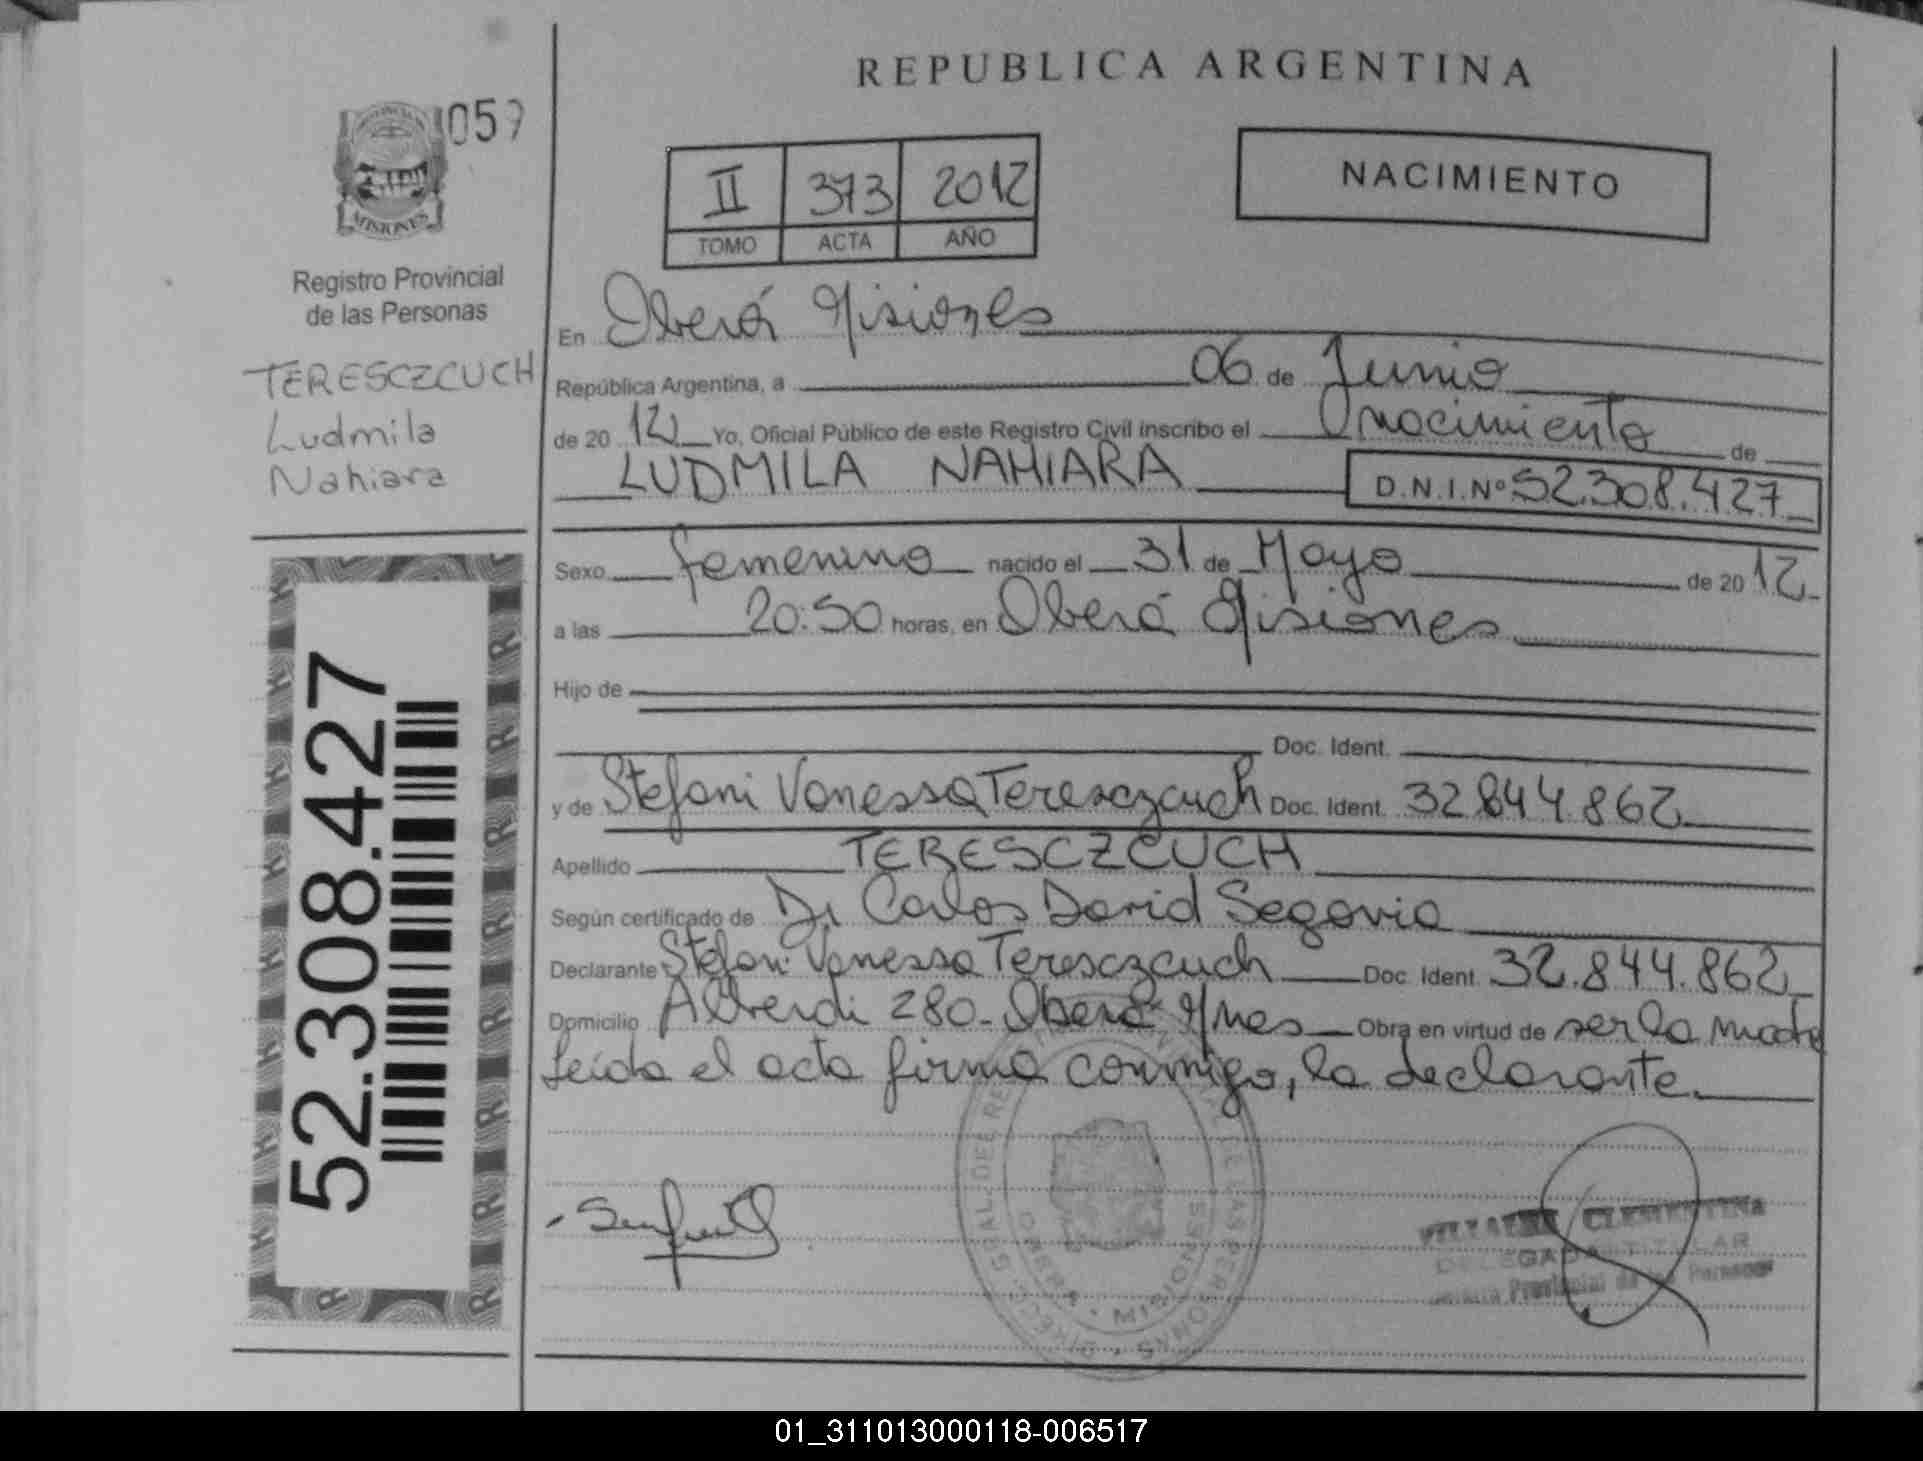 REPUBLICA ARGENTINA
059
II 373 2012
TOMO ACTA AÑO
NACIMIENTO
MISIONES
Registro Provincial
de las Personas
TERESCZCUCH
Ludmila
Nahiara
52.308.427
En Oberá Misiones
República Argentina, a 06 de Junio
de 20 12 Yo, Oficial Público de este Registro Civil inscribo el nacimiento de
LUDMILA NAHIARA D.N.I.Nº 52.308.427
Sexo femenino nacido el 31 de Mayo de 20 12
a las 20:50 horas, en Oberá Misiones
Hijo de
Doc. Ident.
y de Stefani Vanessa Teresczcuch Doc. Ident. 32.844.862
Apellido TERESCZCUCH
Según certificado de Dr Carlos David Segovia
Declarante Stefani Vanessa Teresczcuch Doc. Ident. 32.844.862
Domicilio Alberdi 280 - Oberá Mnes Obra en virtud de ser la madre
Leída el acta firma conmigo, la declarante.
CLEMENTINA
DELEGADA TITULAR
Provincial de las Personas
OBERA • MISIONES
01_311013000118-006517